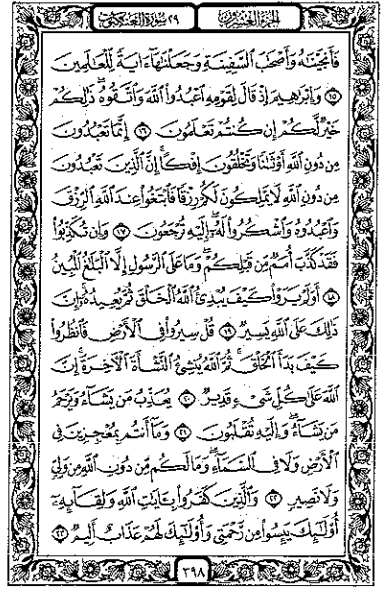 الجزء العشرون
٢٩ سورة العنكبوت
فَأَنجَيْنَٰهُ وَأَصْحَٰبَ ٱلسَّفِينَةِ وَجَعَلْنَٰهَآ ءَايَةً لِّلْعَٰلَمِينَ
١٥ وَإِبْرَٰهِيمَ إِذْ قَالَ لِقَوْمِهِ ٱعْبُدُوا۟ ٱللَّهَ وَٱتَّقُوهُ ۖ ذَٰلِكُمْ
خَيْرٌ لَّكُمْ إِن كُنتُمْ تَعْلَمُونَ ١٦ إِنَّمَا تَعْبُدُونَ
مِن دُونِ ٱللَّهِ أَوْثَٰنًا وَتَخْلُقُونَ إِفْكًا ۚ إِنَّ ٱلَّذِينَ تَعْبُدُونَ
مِن دُونِ ٱللَّهِ لَا يَمْلِكُونَ لَكُمْ رِزْقًا فَٱبْتَغُوا۟ عِندَ ٱللَّهِ ٱلرِّزْقَ
وَٱعْبُدُوهُ وَٱشْكُرُوا۟ لَهُۥٓ ۖ إِلَيْهِ تُرْجَعُونَ ١٧ وَإِن تُكَذِّبُوا۟
فَقَدْ كَذَّبَ أُمَمٌ مِّن قَبْلِكُمْ ۖ وَمَا عَلَى ٱلرَّسُولِ إِلَّا ٱلْبَلَٰغُ ٱلْمُبِينُ
١٨ أَوَلَمْ يَرَوْا۟ كَيْفَ يُبْدِئُ ٱللَّهُ ٱلْخَلْقَ ثُمَّ يُعِيدُهُۥٓ ۚ إِنَّ
ذَٰلِكَ عَلَى ٱللَّهِ يَسِيرٌ ١٩ قُلْ سِيرُوا۟ فِى ٱلْأَرْضِ فَٱنظُرُوا۟
كَيْفَ بَدَأَ ٱلْخَلْقَ ۚ ثُمَّ ٱللَّهُ يُنشِئُ ٱلنَّشْأَةَ ٱلْءَاخِرَةَ ۚ إِنَّ
ٱللَّهَ عَلَىٰ كُلِّ شَىْءٍ قَدِيرٌ ٢٠ يُعَذِّبُ مَن يَشَآءُ وَيَرْحَمُ
مَن يَشَآءُ ۖ وَإِلَيْهِ تُقْلَبُونَ ٢١ وَمَآ أَنتُم بِمُعْجِزِينَ فِى
ٱلْأَرْضِ وَلَا فِى ٱلسَّمَآءِ ۖ وَمَا لَكُم مِّن دُونِ ٱللَّهِ مِن وَلِىٍّ
وَلَا نَصِيرٍ ٢٢ وَٱلَّذِينَ كَفَرُوا۟ بِـَٔايَٰتِ ٱللَّهِ وَلِقَآئِهِۦٓ
أُو۟لَٰٓئِكَ يَئِسُوا۟ مِن رَّحْمَتِى وَأُو۟لَٰٓئِكَ لَهُمْ عَذَابٌ أَلِيمٌ ٢٣
٣٩٨